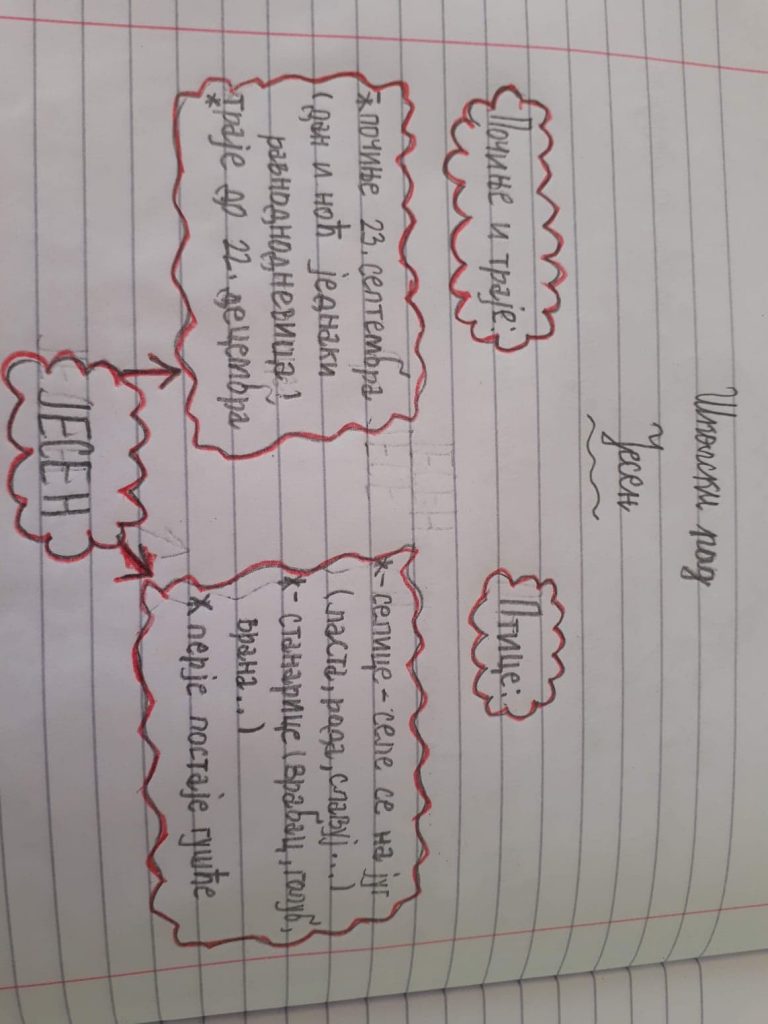 Школски рад
Јесен
Почиње и траје:
*почиње 23. септембра
(дан и ноћ једнаки
равнодневица)
*траје до 22. децембра
Птице:
*-селице - селе се на југ
(ласта, рода, славуј...)
*-станарице (врабац, голуб,
врана...)
*перје постаје гушће
ЈЕСЕН